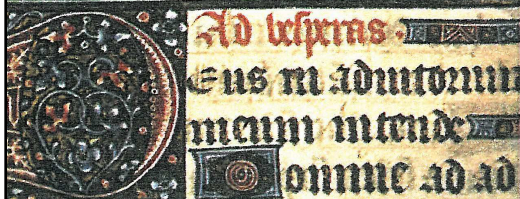 Ad vesperas.
Deus in adiutorium
meum intende
Domine ad ad